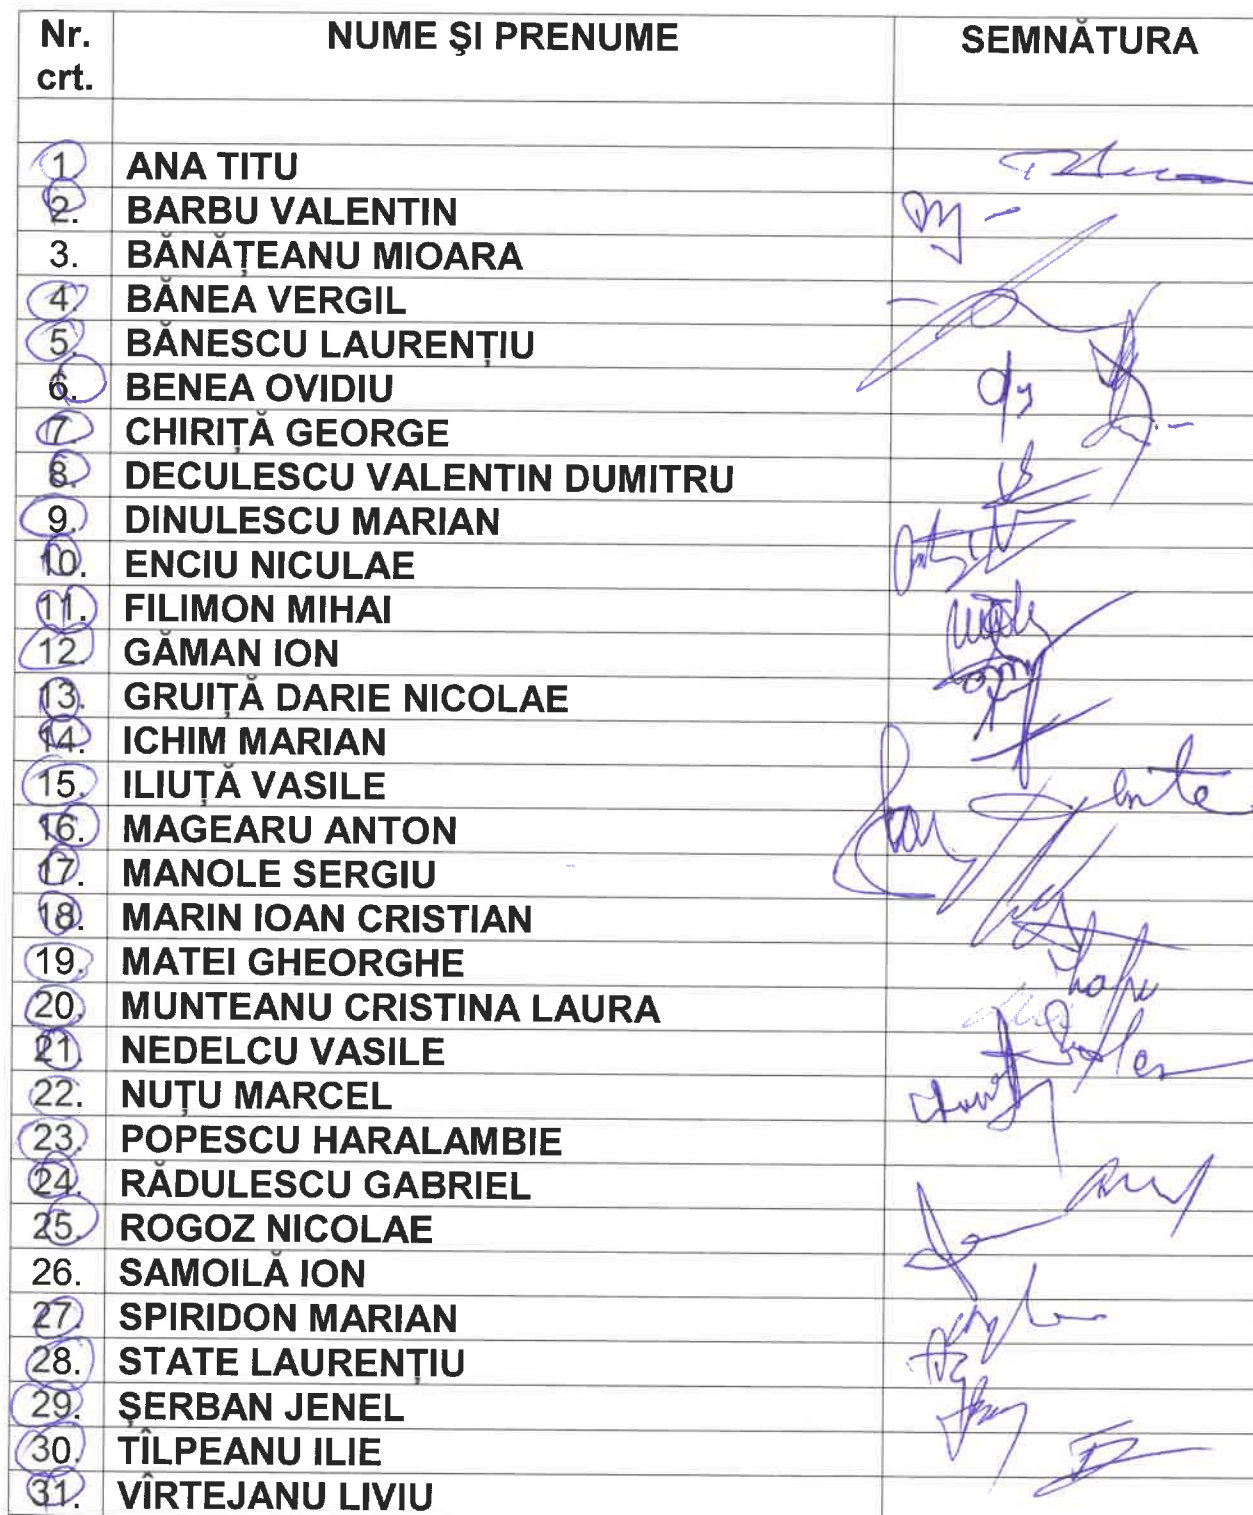 Nr. crt. NUME ŞI PRENUME SEMNĂTURA
1 ANA TITU
2. BARBU VALENTIN
3. BĂNĂȚEANU MIOARA
4. BĂNEA VERGIL
5. BĂNESCU LAURENȚIU
6. BENEA OVIDIU
7. CHIRIȚĂ GEORGE
8. DECULESCU VALENTIN DUMITRU
9. DINULESCU MARIAN
10. ENCIU NICULAE
11. FILIMON MIHAI
12. GĂMAN ION
13. GRUIȚĂ DARIE NICOLAE
14. ICHIM MARIAN
15. ILIUȚĂ VASILE
16. MAGEARU ANTON
17. MANOLE SERGIU
18. MARIN IOAN CRISTIAN
19. MATEI GHEORGHE
20. MUNTEANU CRISTINA LAURA
21. NEDELCU VASILE
22. NUȚU MARCEL
23. POPESCU HARALAMBIE
24. RĂDULESCU GABRIEL
25. ROGOZ NICOLAE
26. SAMOILĂ ION
27. SPIRIDON MARIAN
28. STATE LAURENȚIU
29. ȘERBAN JENEL
30. TÎLPEANU ILIE
31. VÎRTEJANU LIVIU